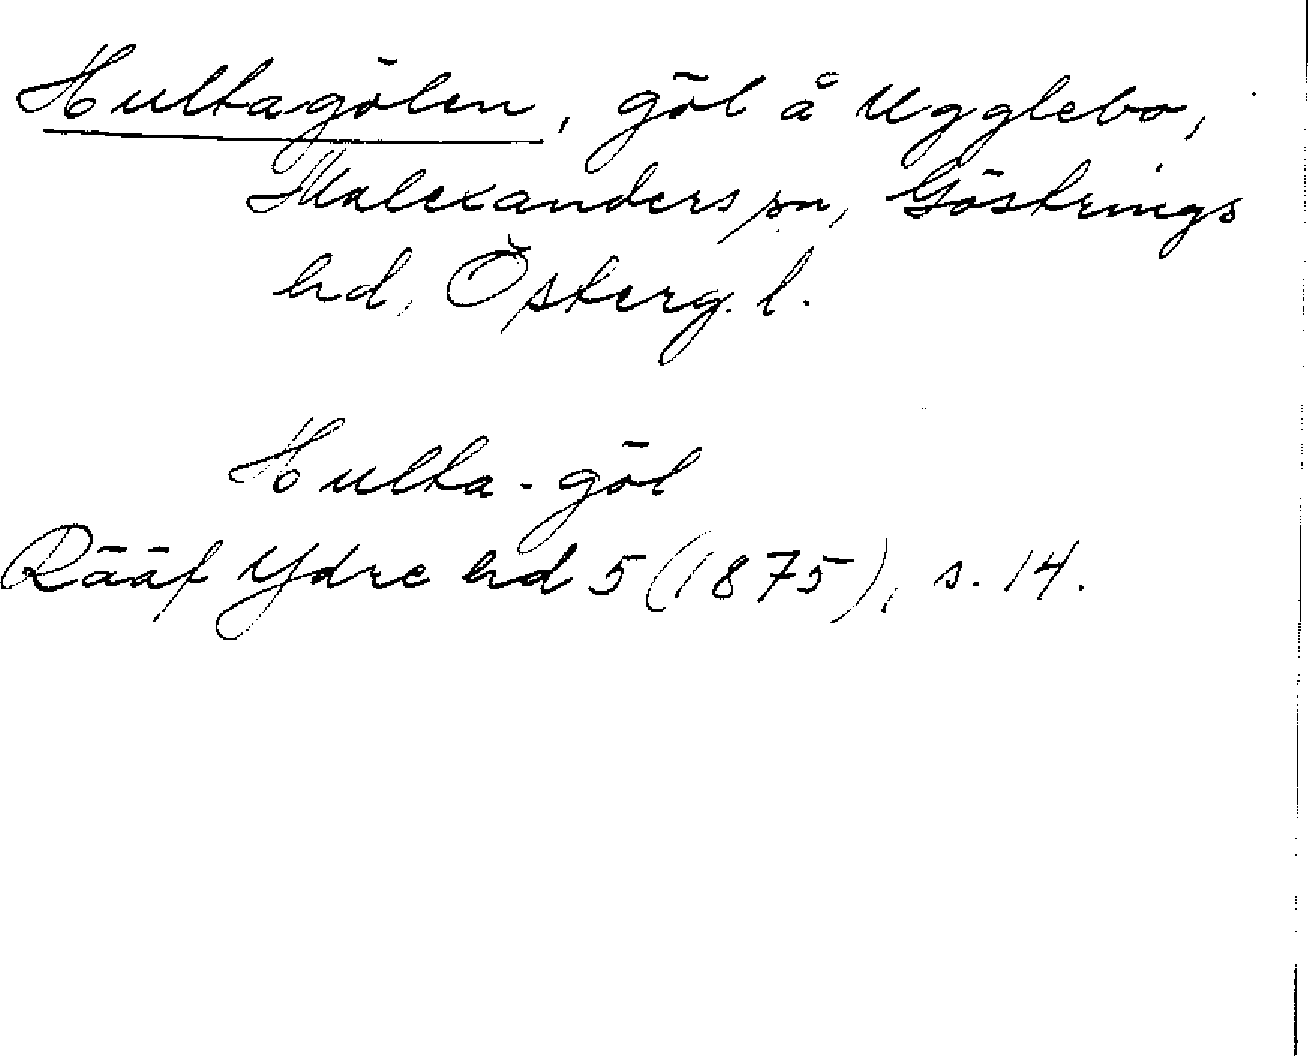 Hultagölen, göl å Ugglebo,
Malexanders sn, Göstrings
hd, Österg. l.
Hulta-göl
Rääf Ydre hd 5 (1875), s. 14.